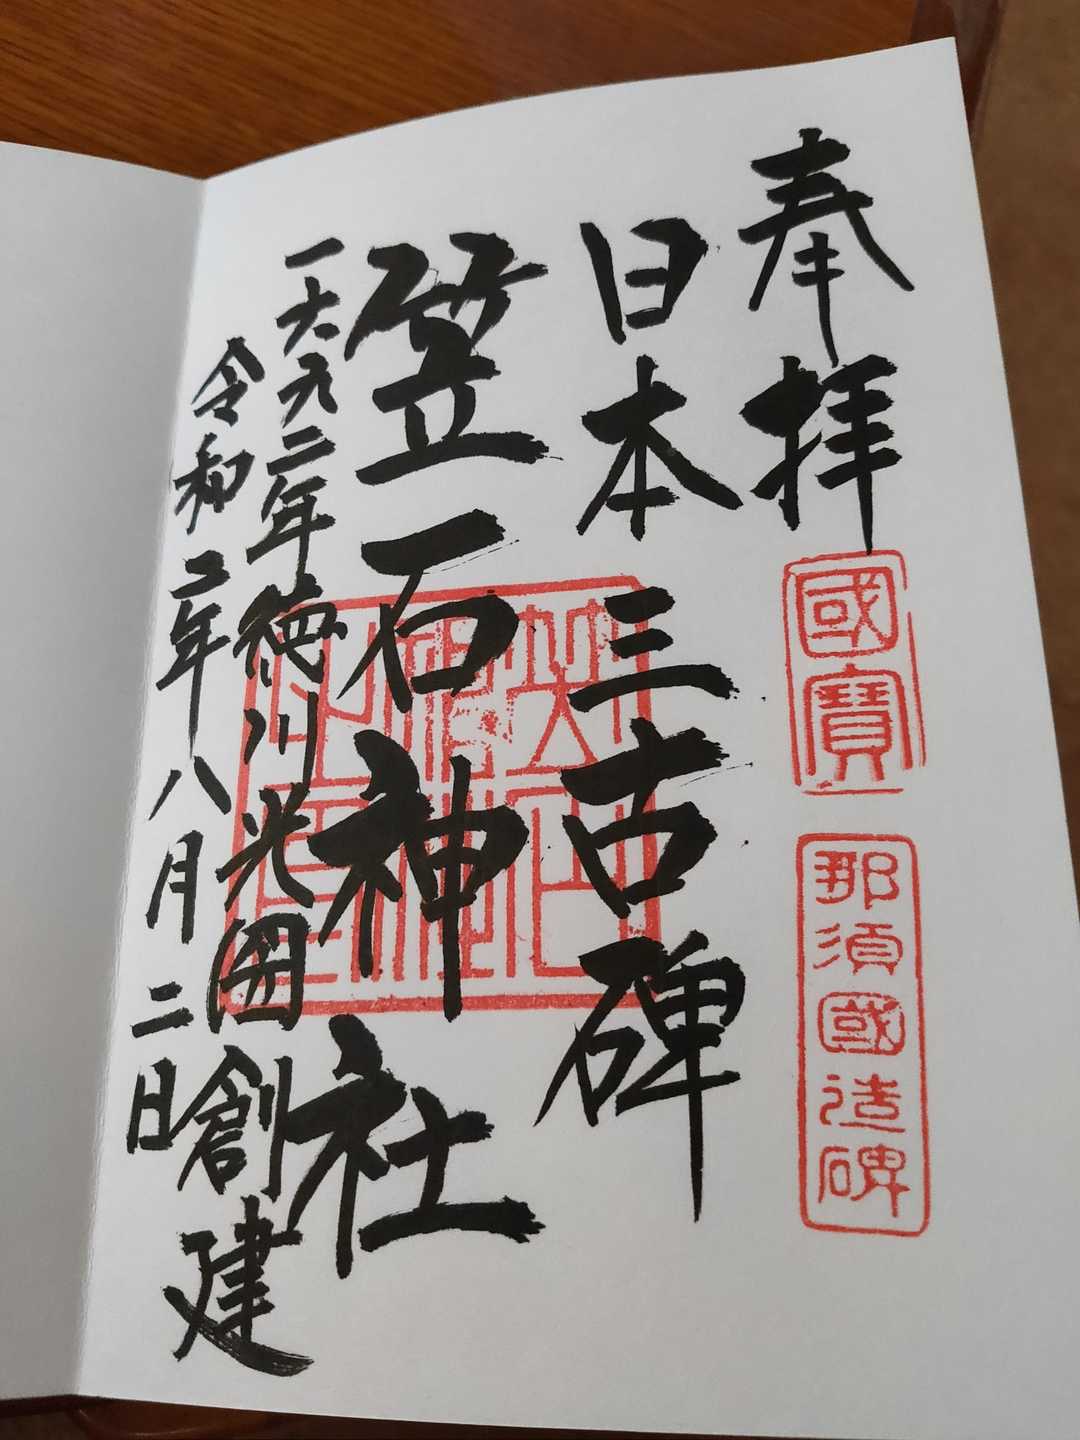 奉拝
國寳
那須國造碑
日本三古碑
笠石神社
一六九二年徳川光圀創建
令和二年八月二日